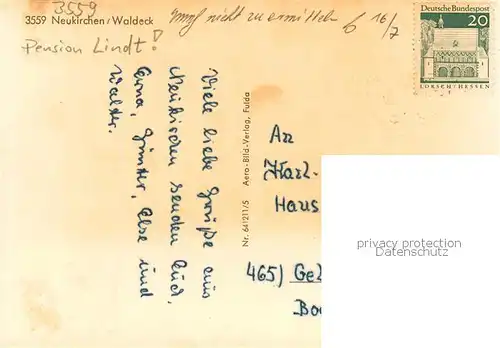 3559
3559 Neukirchen / Waldeck
Pension Lindt!
nicht zu ermitteln
6 16/7
Deutsche Bundespost
20
LORSCH / HESSEN
Viele liebe Grüße aus
Neukirchen senden Euch,
Erna, Günther, Else und
Walter.
Nr. 641211/5 Aero-Bild-Verlag, Fulda
An
Karl-
Haus
465) Gel
Bo
privacy protection
Datenschutz